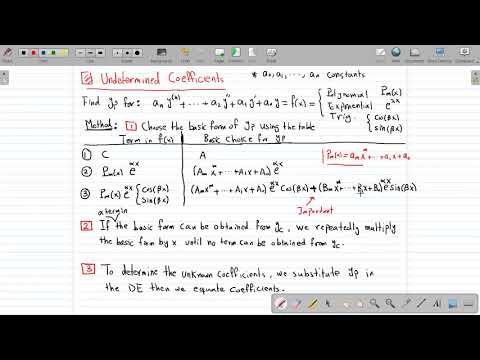 Undetermined Coefficients
* a₀, a₁, ..., aₙ constants
Find yₚ for: aₙ y⁽ⁿ⁾ + ... + a₂ y'' + a₁ y' + a₀ y = f(x) = { Polynomial Pₘ(x)
Exponential e^αx
Trig. { cos(βx)
sin(βx)
Method: 1 Choose the basic form of yₚ using the table
Term in f(x) | Basic choice for yₚ
Pₘ(x) = aₘ x^m + ... + a₁ x + a₀
1 C | A
2 Pₘ(x) e^αx | (Aₘ x^m + ... + A₁ x + A₀) e^αx
3 Pₘ(x) e^αx { cos(βx) | (Aₘ x^m + ... + A₁ x + A₀) e^αx cos(βx) + (Bₘ x^m + ... + B₁ x + B₀) e^αx sin(βx)
sin(βx)
Important
2 If the basic form can be obtained from y_c, we repeatedly multiply
the basic form by x until no term can be obtained from y_c.
3 To determine the unknown coefficients, we substitute yₚ in
the DE then we equate coefficients.